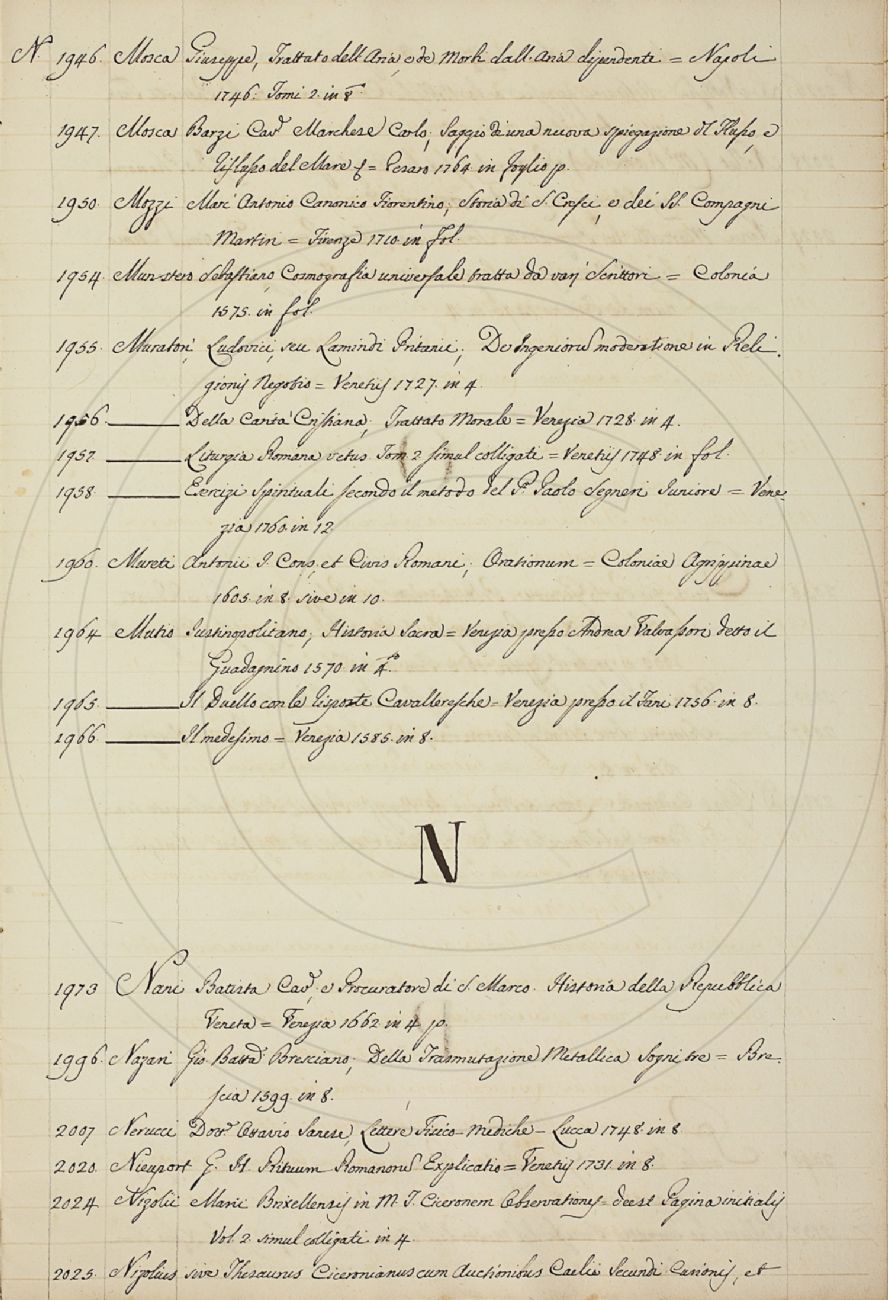 N. 1946. Mosca Giuseppe, Trattato dell'Aria, e de' Morbi dall'Aria dipendenti = Napoli
1746. Tomi 2. in 8.º
1947. Mosca Barzi Cav.r Marchese Carlo; Saggio di una nuova spiegazione del Flusso, e
Riflusso del Mare = Pesaro 1764 in foglio p.
1950. Mozzi Marc'Antonio Canonico Fiorentino; Storia di S. Cresci, e dei SS. Compagni
Martiri = Firenze 1710. in fol.
1954. Munstero Sebastiano, Cosmografia universale tratta da varj Scrittori = Colonia
1575. in fol.
1955. Muratori, Ludovici, seu Lamindi Pritanii; De Ingeniorũ moderatione in Reli-
gionis Negotio = Venetiis 1727. in 4.
1956. ——— Della Carità Cristiana; Trattato Morale = Venezia 1728. in 4.
1957. ——— Liturgia Romana vetus Tom. 2. simul colligati = Venetiis 1748 in fol.
1958. ——— Esercizi Spirituali secondo il metodo del P. Paolo Segneri Juniore = Vene-
zia 1760. in 12.
1960. Mureti Antonii I. Cons. et Civis Romani; Orationum = Coloniae Agrippinae
1605. in 8. sive in 10.
1964 Mutio Iustinopolitano; Historia Sacra = Venezia presso Andrea Valvassori detto il
Guadagnino 1570. in 4.º
1965. ——— Il Duello con le Risposte Cavalleresche = Venezia presso il 1556. in 8.
1966. ——— Il medesimo = Venezia 1585. in 8.
N
1973 Nani Batista Cav.r, e Procuratore di S. Marco. Historia della Repubblica
Veneta = Venezia 1662. in 4. p.
1996. Nazari Gio. Batta Bresciano; Della Trasmutazione Metallica Sogni tre = Bre-
scia 1599. in 8.
2007 Nerucci Dott.r Otavio Sanese, Lettere Fisico-Mediche = Lucca 1748. in 8
2020. Nieuport G. H. Rituum Romanorũ Explicatio = Venetiis 1731. in 8.
2024 Nizolii Marii Brixellensis in M. T. Ciceronem Observationes = deest Pagina initialis
Vol. 2. simul colligati in 4.
2025. Nizolius sive Thesaurus Ciceronianus cum Auctionibus Caelii Secundi Curionis, et